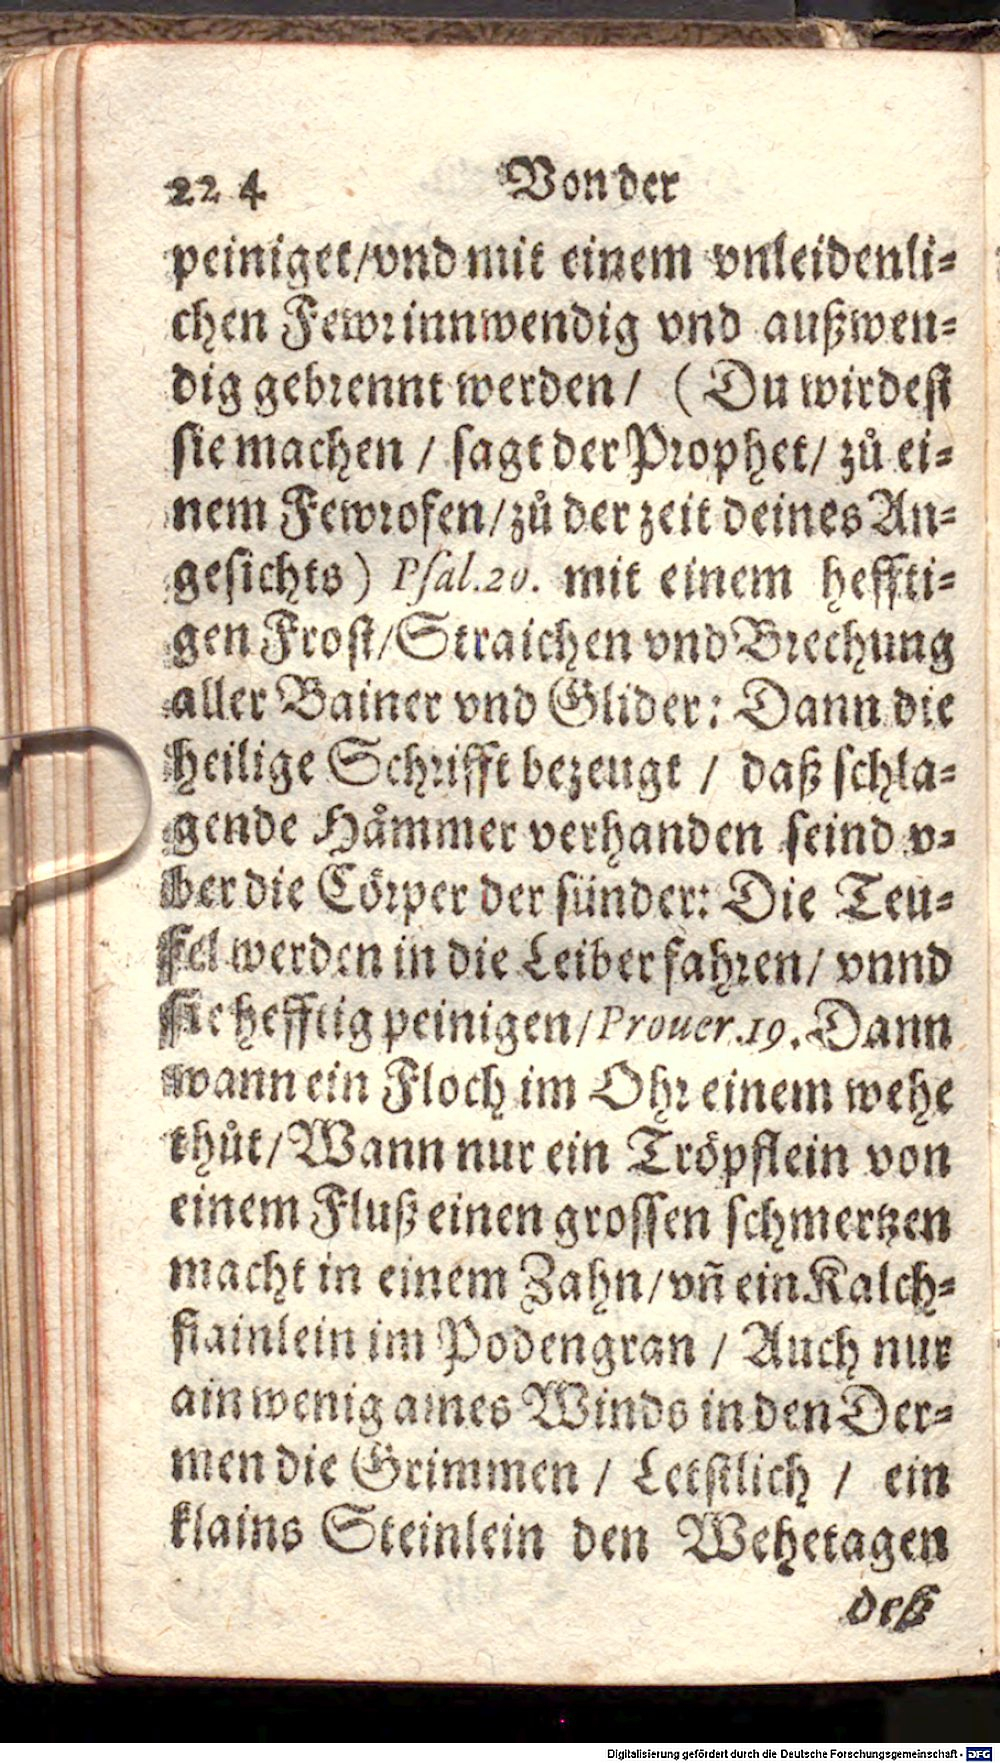 224 Von der
peiniget/vnd mit einem vnleidenli-
chen Fewr innwendig vnd außwen-
dig gebrennt werden/ (Du wirdest
sie machen / sagt der Prophet/ zů ei-
nem Fewrofen/zů der zeit deines An-
gesichts) Psal.20. mit einem heffti-
gen Frost/Straichen vnd Brechung
aller Bainer vnd Glider: Dann die
heilige Schrifft bezeugt / daß schla-
gende Håmmer verhanden seind v-
ber die Cörper der sünder: Die Teu-
fel werden in die Leiber fahren/ vnnd
sie hefftig peinigen/Prouer.19. Dann
wann ein Floch im Ohr einem wehe
thůt/Wann nur ein Tröpflein von
einem Fluß einen grossen schmertzen
macht in einem Zahn/vñ ein Kalch-
stainlein im Podengran / Auch nur
ain wenig aines Winds in den Der-
men die Grimmen / Letstlich / ein
klains Steinlein den Wehetagen
deß
Digitalisierung gefördert durch die Deutsche Forschungsgemeinschaft - DFG